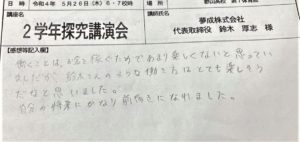 令和4年 5月26日(木) 6・7校時
講師氏名
2学年探究講演会
夢成株式会社
代表取締役 鈴木 厚志 様
【感想等記入欄】
働くことは、お金を稼ぐためであまり楽しくないと思ってい
ましたが、鈴木さんのような働き方はとても楽しそう
だなと思いました。
自分の将来にかなり前向きになれました。